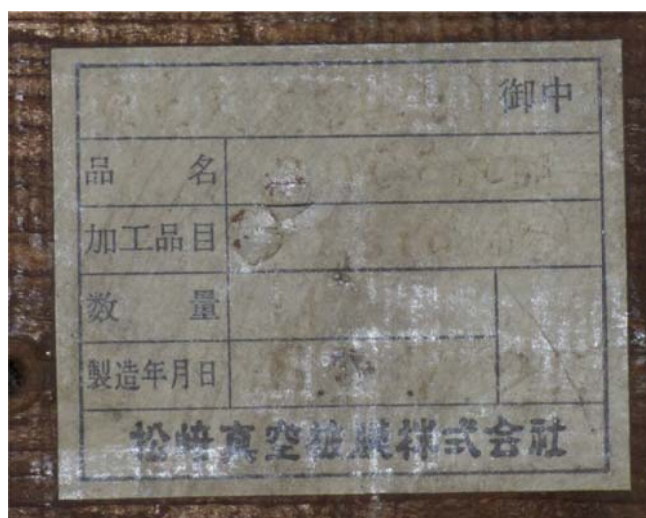 御中
品名
加工品目
数量
製造年月日
松崎真空被膜株式会社